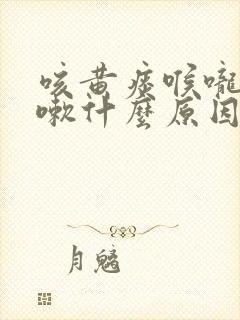 咳黄痰喉嚨
嗽什麼原因
月魑